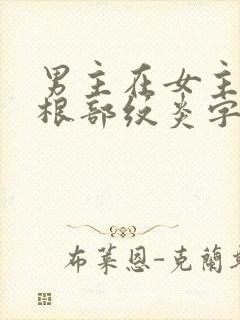 男主在女主
根部纹炎字
布莱恩-克蘭